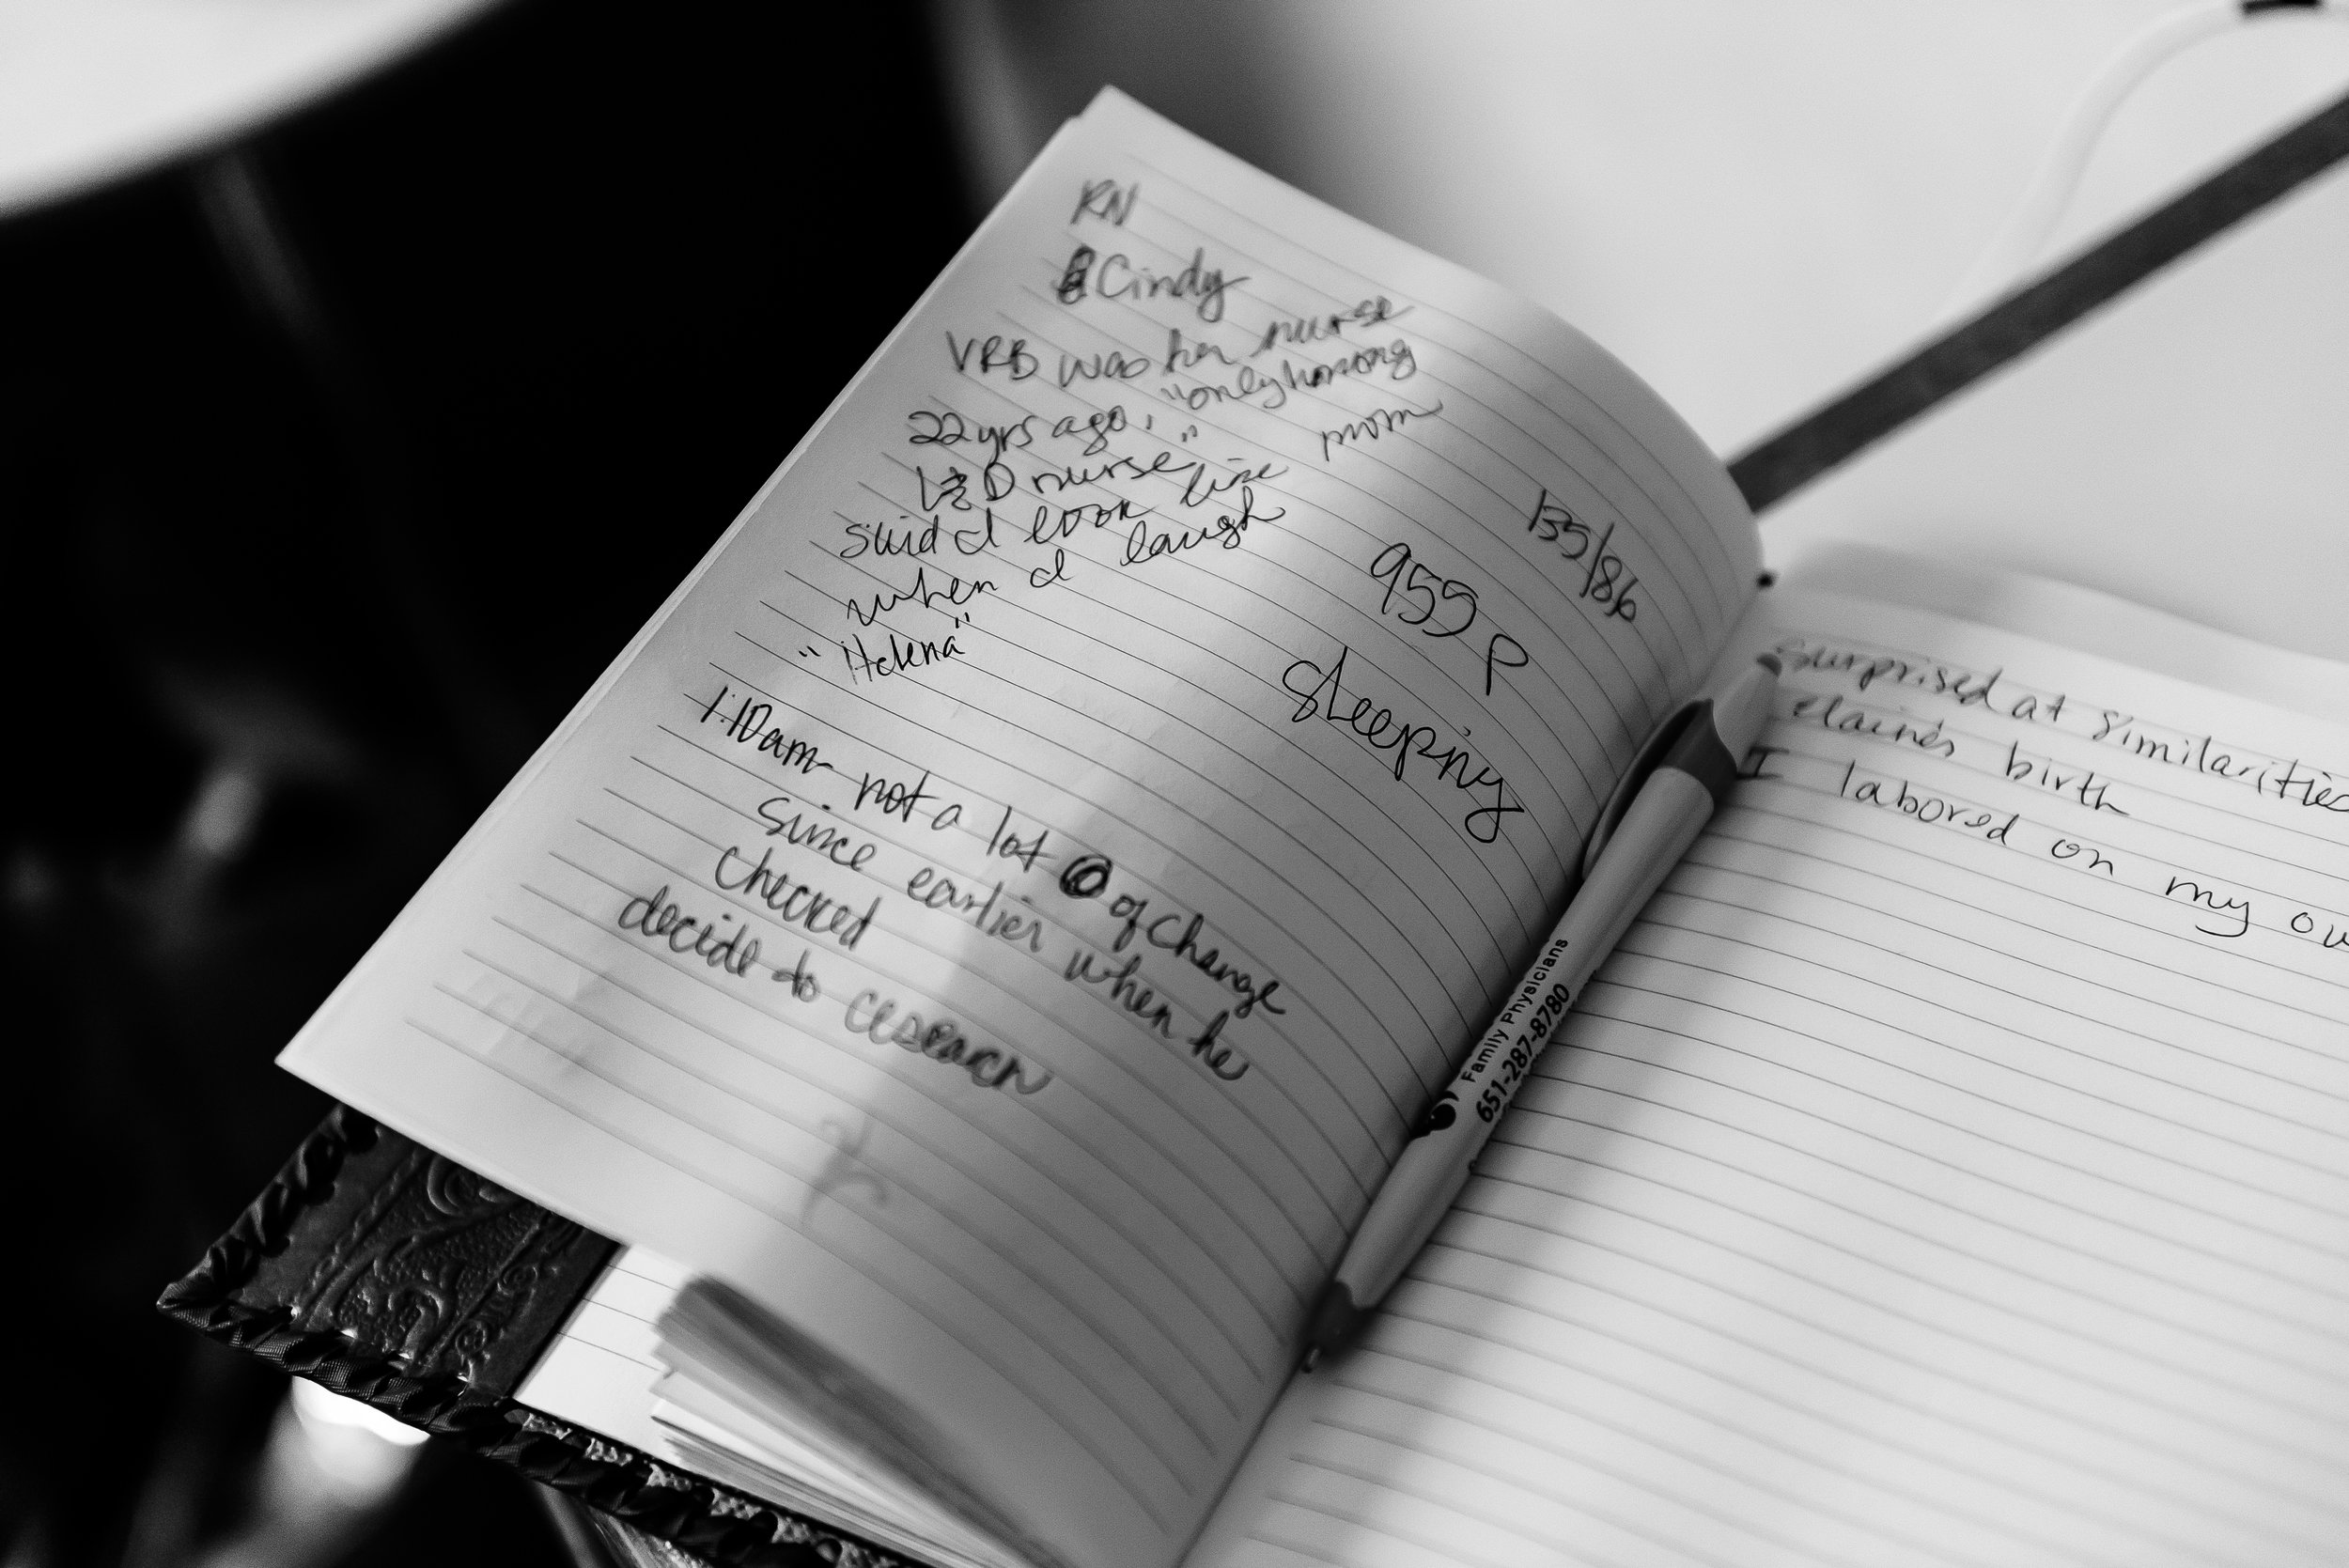 RN
Cindy
VRB was her nurse
22 yrs ago, "only
mom
L&D nurse"
said I look like
when I laugh
"Helena"
135/86
955 P
sleeping
1:10am not a lot of change
since earlier when he
checked
decide to cesearen
surprised at similarities
elaine's birth
I labored on my
Family Physicians
651-287-8780